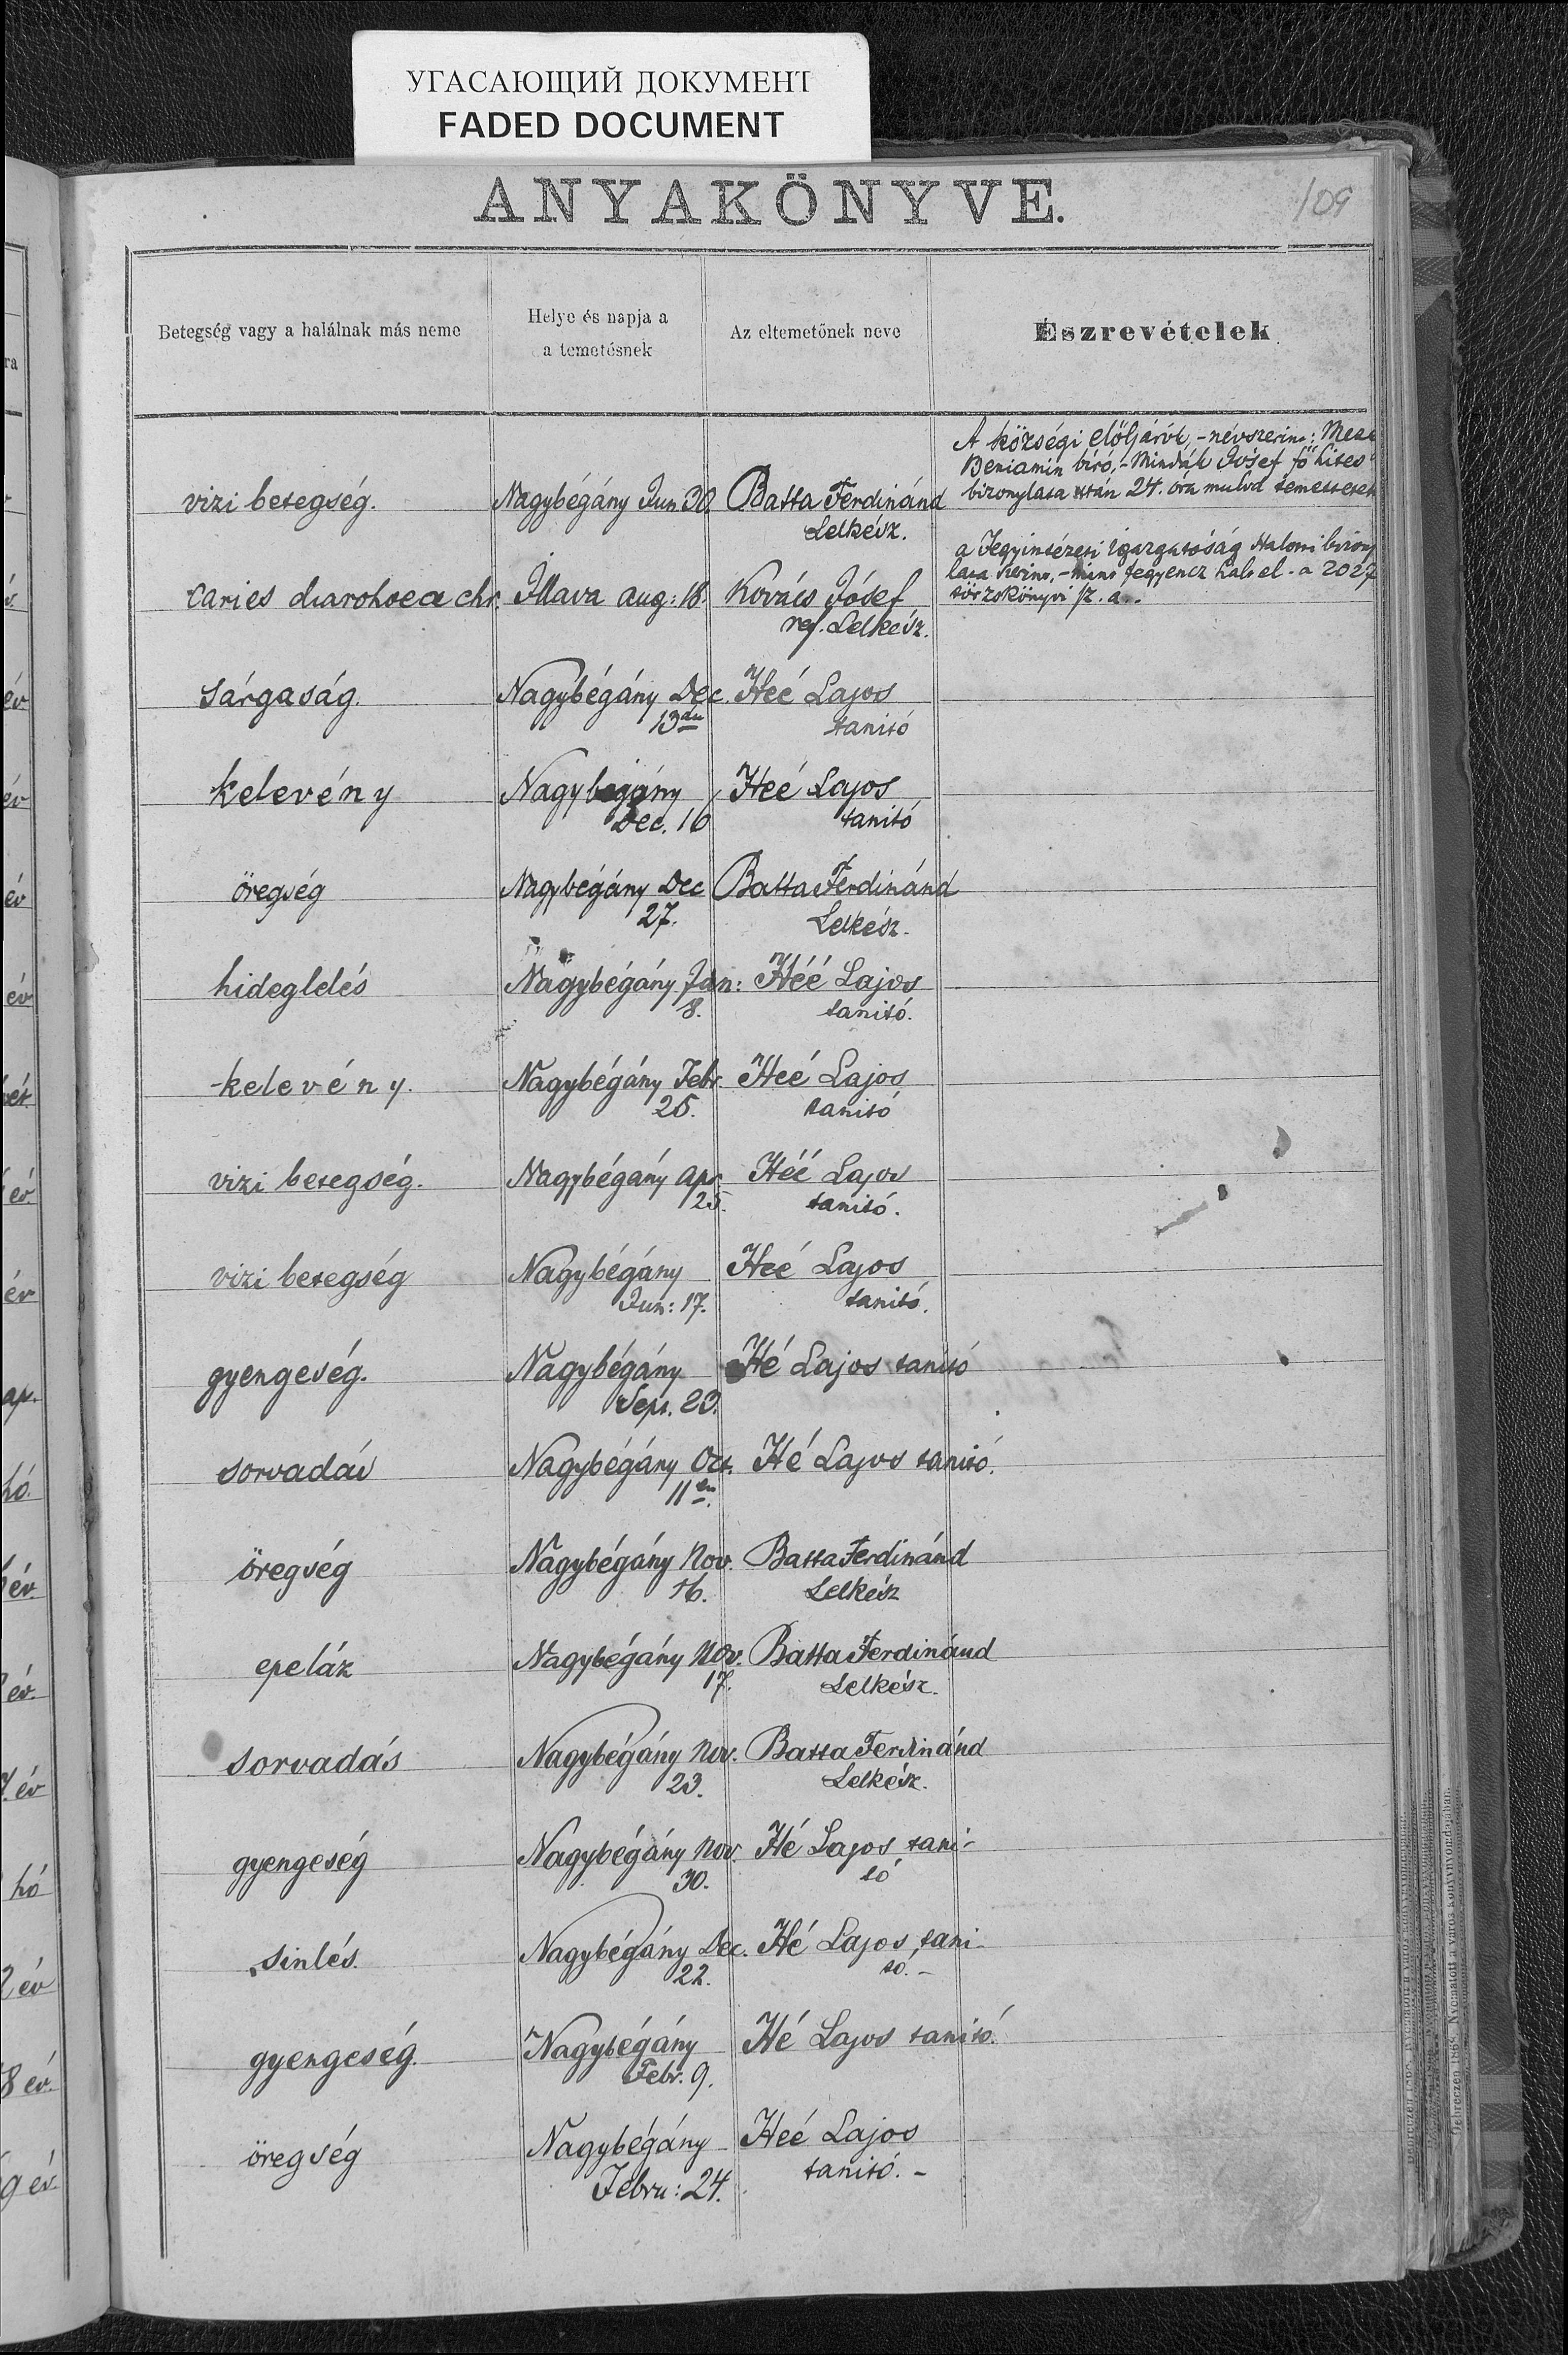 УГАСАЮЩИЙ ДОКУМЕНТ
FADED DOCUMENT
ANYAKÖNYVE.
109
Betegség vagy a halálnak más neme
Helye és napja a
a temetésnek
Az eltemetőnek neve
Észrevételek
A községi elöljárók, - névszerint:
Beniamin biró, - Mindák Jósef fő hites
bizonylata után 24. óra mulva temettetett
vizi betegség. Nagybégány Jun 30. Batta Ferdinánd
Lelkész.
a Fegyintézeti igazgatóság Halotti bizony
lata szerint, - mint fegyencz halt el - a 2027
törzskönyvi sz. a..
caries diarohoea chr. Illava aug: 18. Kovács Jósef
ref. Lelkész.
Sárgaság. Nagybégány Dec. Heé Lajos
13án tanitó
kelevény Nagybégány Heé Lajos
Dec. 16 tanitó
öregség Nagybégány Dec Batta Ferdinánd
27. Lelkész.
hideglelés Nagybégány Jan: Héé Lajos
8. tanitó.
kelevény. Nagybégány Febr. Heé Lajos
25. tanitó
vizi betegség. Nagybégány apr. Héé Lajos
25. tanitó.
vizi betegség Nagybégány Heé Lajos
Jun: 17. tanitó.
gyengeség. Nagybégány Hé Lajos tanitó
Sept. 23.
sorvadás Nagybégány Oct. Hé Lajos tanitó.
11én.
öregség Nagybégány Nov. Batta Ferdinánd
16. Lelkész
epeláz Nagybégány Nov. Batta Ferdinánd
17. Lelkész.
sorvadás Nagybégány Nov. Batta Ferdinánd
23. Lelkész.
gyengeség Nagybégány Nov. Hé Lajos tani-
30. tó
sinlés. Nagybégány Dec. Hé Lajos tani-
22. tó. -
gyengeség. Nagybégány Hé Lajos tanitó.
Febr. 9.
öregség Nagybégány Heé Lajos
Febru: 24. tanitó. -